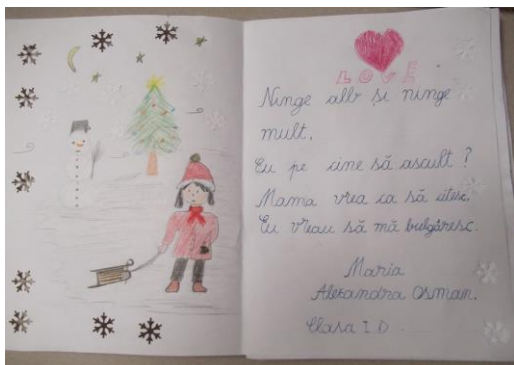 LOVE
Ninge alb și ninge
mult,
Eu pe cine să ascult ?
Mama vrea ca să citesc.
Eu vreau să mă bulgăresc.
Maria
Alexandra Osman.
Clasa I D